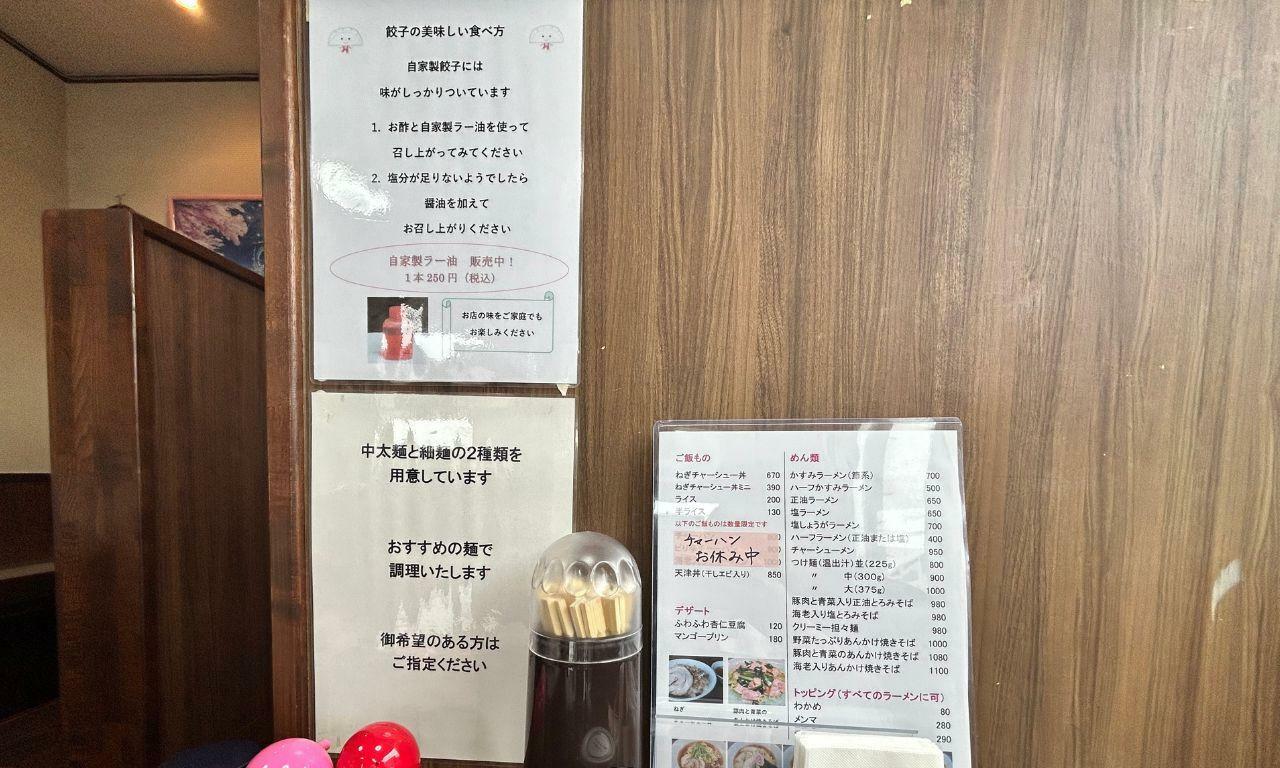 餃子の美味しい食べ方
自家製餃子には
味がしっかりついています
1. お酢と自家製ラー油を使って
召し上がってみてください
2. 塩分が足りないようでしたら
醤油を加えて
お召し上がりください
自家製ラー油 販売中！
1本250円（税込）
お店の味をご家庭でも
お楽しみください
中太麺と細麺の2種類を
用意しています
おすすめの麺で
調理いたします
御希望のある方は
ご指定ください
ご飯もの
ねぎチャーシュー丼 670
ねぎチャーシュー丼ミニ 390
ライス 200
半ライス 130
以下のご飯ものは数量限定です
チャーハン
お休み中
天津丼（干しエビ入り） 850
デザート
ふわふわ杏仁豆腐 120
マンゴープリン 180
ねぎ
豚肉と青菜の
めん類
かすみラーメン（節系） 700
ハーフかすみラーメン 500
正油ラーメン 650
塩ラーメン 650
塩しょうがラーメン 700
ハーフラーメン（正油または塩） 400
チャーシューメン 950
つけ麺（温出汁）並（225g） 800
〃 中（300g） 900
〃 大（375g） 1000
豚肉と青菜入り正油とろみそば 980
海老入り塩とろみそば 980
クリーミー担々麺 980
野菜たっぷりあんかけ焼きそば 1000
豚肉と青菜のあんかけ焼きそば 1080
海老入りあんかけ焼きそば 1100
トッピング（すべてのラーメンに可）
わかめ 80
メンマ 280
290